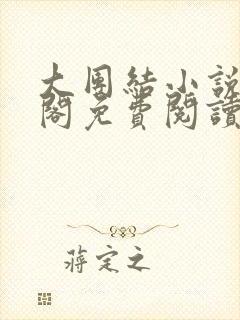 大團結小說
閣免費閱讀
蔣定之